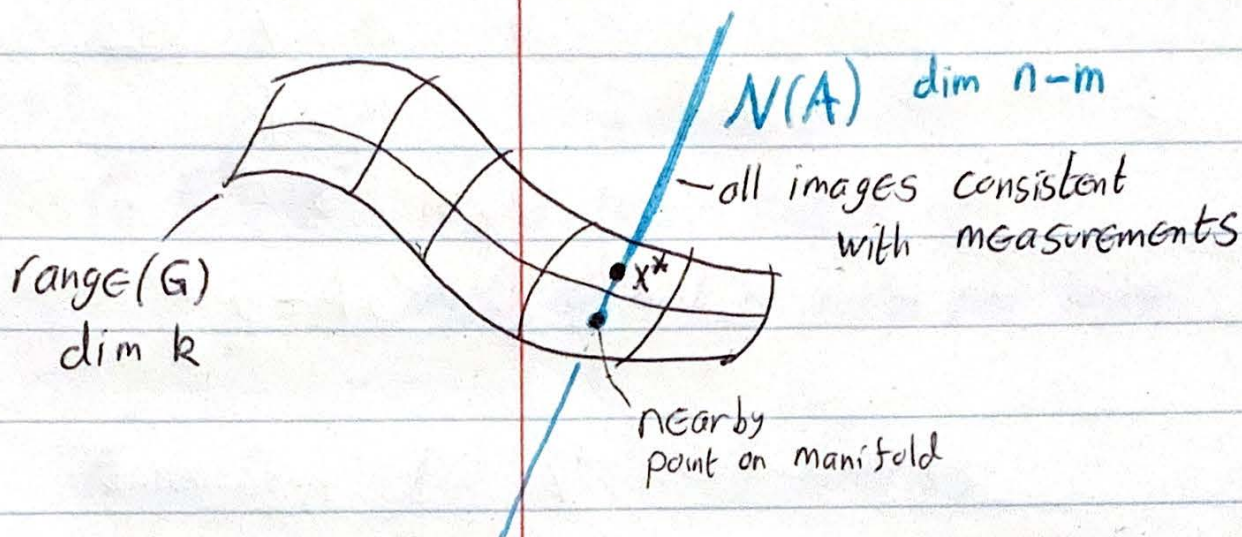 N(A) dim n-m
all images consistent
with measurements
x*
range(G)
dim k
nearby
point on manifold